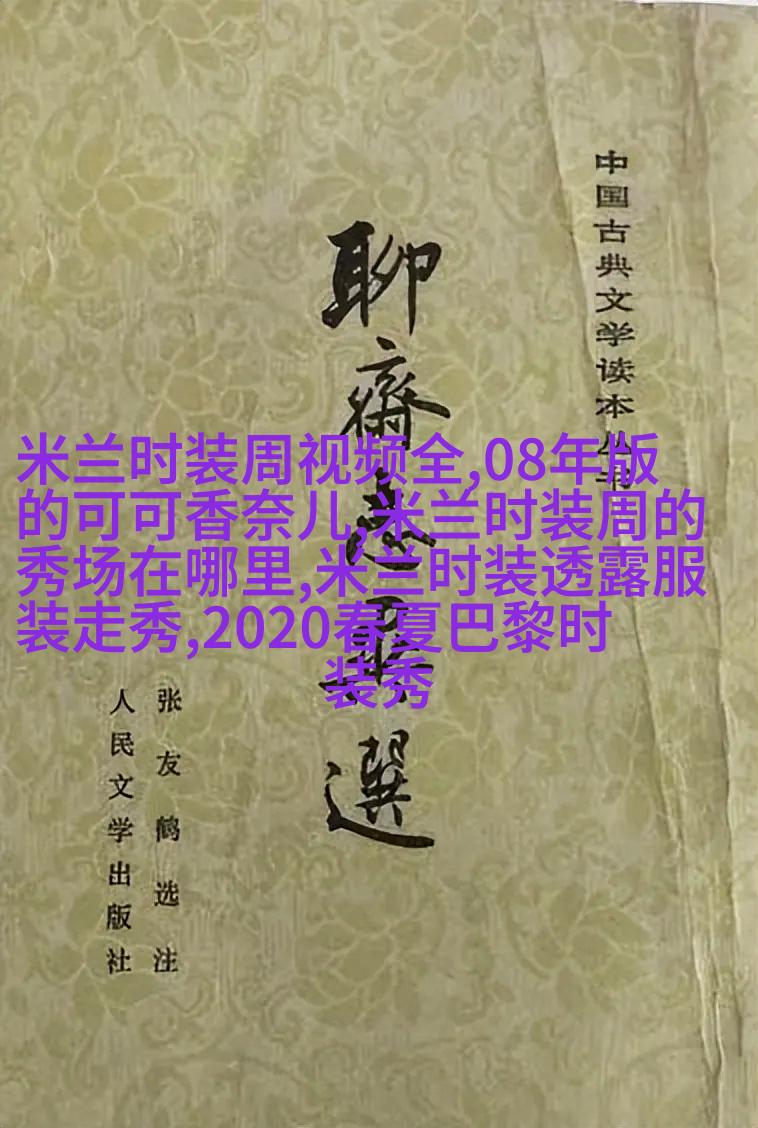 中国古典文学读本丛书
聊齋志異選
米兰时装周视频全,08年版
的可可香奈儿,米兰时装周的
秀场在哪里,米兰时装透露服
装走秀,2020春夏巴黎时
装秀
张友鹤选注
人民文学出版社